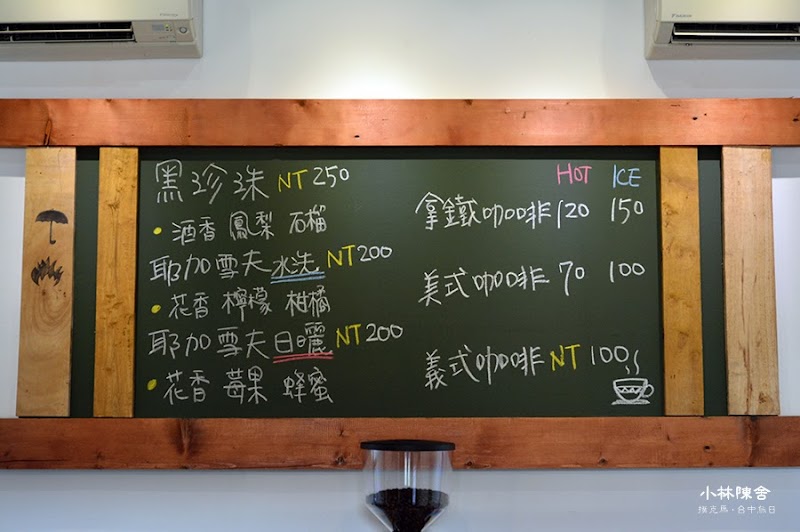 黑珍珠 NT 250
酒香 鳳梨 石榴
耶加雪夫 水洗 NT 200
花香 檸檬 柑橘
耶加雪夫 日曬 NT 200
花香 莓果 蜂蜜
HOT ICE
拿鐵咖啡 120 150
美式咖啡 70 100
義式咖啡 NT 100
小林陳舍
台中烏日